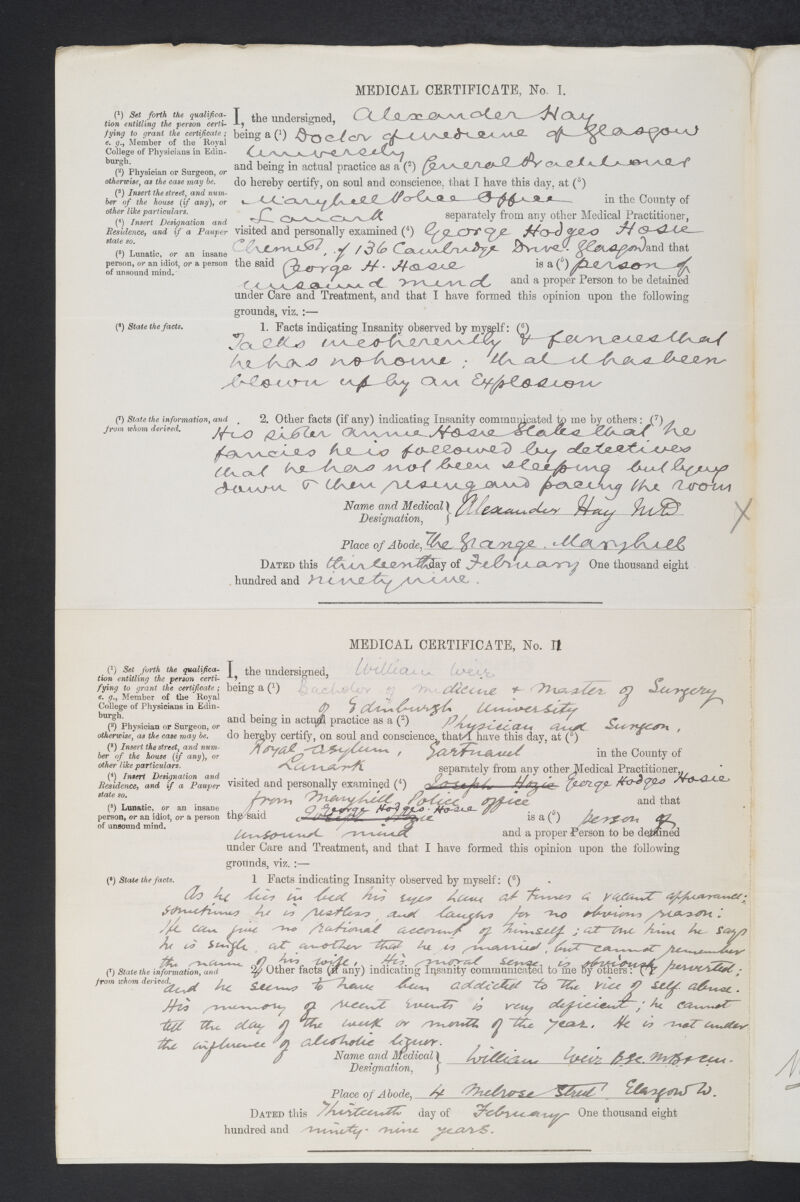 MEDICAL CERTIFICATE, No. I.
(1) Set forth the qualifica-
tion entitling the person certi-
fying to grant the certificate;
e. g., Member of the Royal
College of Physicians in Edin-
burgh.
(2) Physician or Surgeon, or
otherwise, as the case may be.
(3) Insert the street, and num-
ber of the house (if any), or
other like particulars.
(4) Insert Designation and
Residence, and if a Pauper
state so.
(5) Lunatic, or an insane
person, or an idiot, or a person
of unsound mind.
I, the undersigned, Alexander Hay
being a (1) Doctor of medicine of Glasgow
University
and being in actual practice as a (2) General Practitioner
do hereby certify, on soul and conscience, that I have this day, at (3)
Maryhill Police Office in the County of
Lanark separately from any other Medical Practitioner,
visited and personally examined (4) George Hodges Hosie
Chemist, of 136 Cambridge Drive. Glasgow and that
the said George H. Hosie is a (5) person of
unsound mind and a proper Person to be detained
under Care and Treatment, and that I have formed this opinion upon the following
grounds, viz. :—
(6) State the facts.
1. Facts indicating Insanity observed by myself: (6)
Talks incoherently & fancies that
he has no home; that it has been
blown up by an Explosion
(7) State the information, and
from whom derived.
2. Other facts (if any) indicating Insanity communicated to me by others: (7)
His sister Annie Hosie States that he
fancies he is followed by detectives
that he has not been sleeping but lying
down & then rising and pacing the room
Name and Medical
Designation, Alexander Hay M.D.
X
Place of Abode, The Grange. Maryhill
DATED this thirteenth day of February One thousand eight
hundred and ninety nine.
MEDICAL CERTIFICATE, No. II
(1) Set forth the qualifica-
tion entitling the person certi-
fying to grant the certificate;
e. g., Member of the Royal
College of Physicians in Edin-
burgh.
(2) Physician or Surgeon, or
otherwise, as the case may be.
(3) Insert the street, and num-
ber of the house (if any), or
other like particulars.
(4) Insert Designation and
Residence, and if a Pauper
state so.
(5) Lunatic, or an insane
person, or an idiot, or a person
of unsound mind.
I, the undersigned, William Weir
being a (1) Bachelor of medicine & Master of Surgery
of Edinburgh University
and being in actual practice as a (2) Physician and Surgeon,
do hereby certify, on soul and conscience, that I have this day, at (3)
Royal Asylum, Gartnavel in the County of
Lanark separately from any other Medical Practitioner,
visited and personally examined (4) Joseph Hozie George Hodges Hosie
from Maryhill Police office and that
George Hodges Hosie
the said Joseph Hozie is a (5) person of
unsound mind and a proper Person to be detained
under Care and Treatment, and that I have formed this opinion upon the following
grounds, viz. :—
(6) State the facts.
1 Facts indicating Insanity observed by myself: (6)
As he lies in bed his eyes have at times a vacant appearance;
sometimes he is restless, and laughs for no obvious reason:
He can give no rational account of himself; at one time he says
he is single, at another that he is married, but cannot remember
the name of his wife. His moral sense is obviously perverted;
(7) State the information, and
from whom derived.
2. Other facts (if any) indicating Insanity communicated to me by others: (7)
and he seems to have been addicted to the vice of self abuse.
His memory of recent events is very deficient; he cannot
tell the day of the week or month of the year. He is not under
the influence of alcoholic liquor.
Name and Medical
Designation, William Weir B.Sc. M.B. & C.M.
Place of Abode, 4 Melrose Street, Glasgow W.
DATED this Thirteenth day of February One thousand eight
hundred and ninety-nine years.